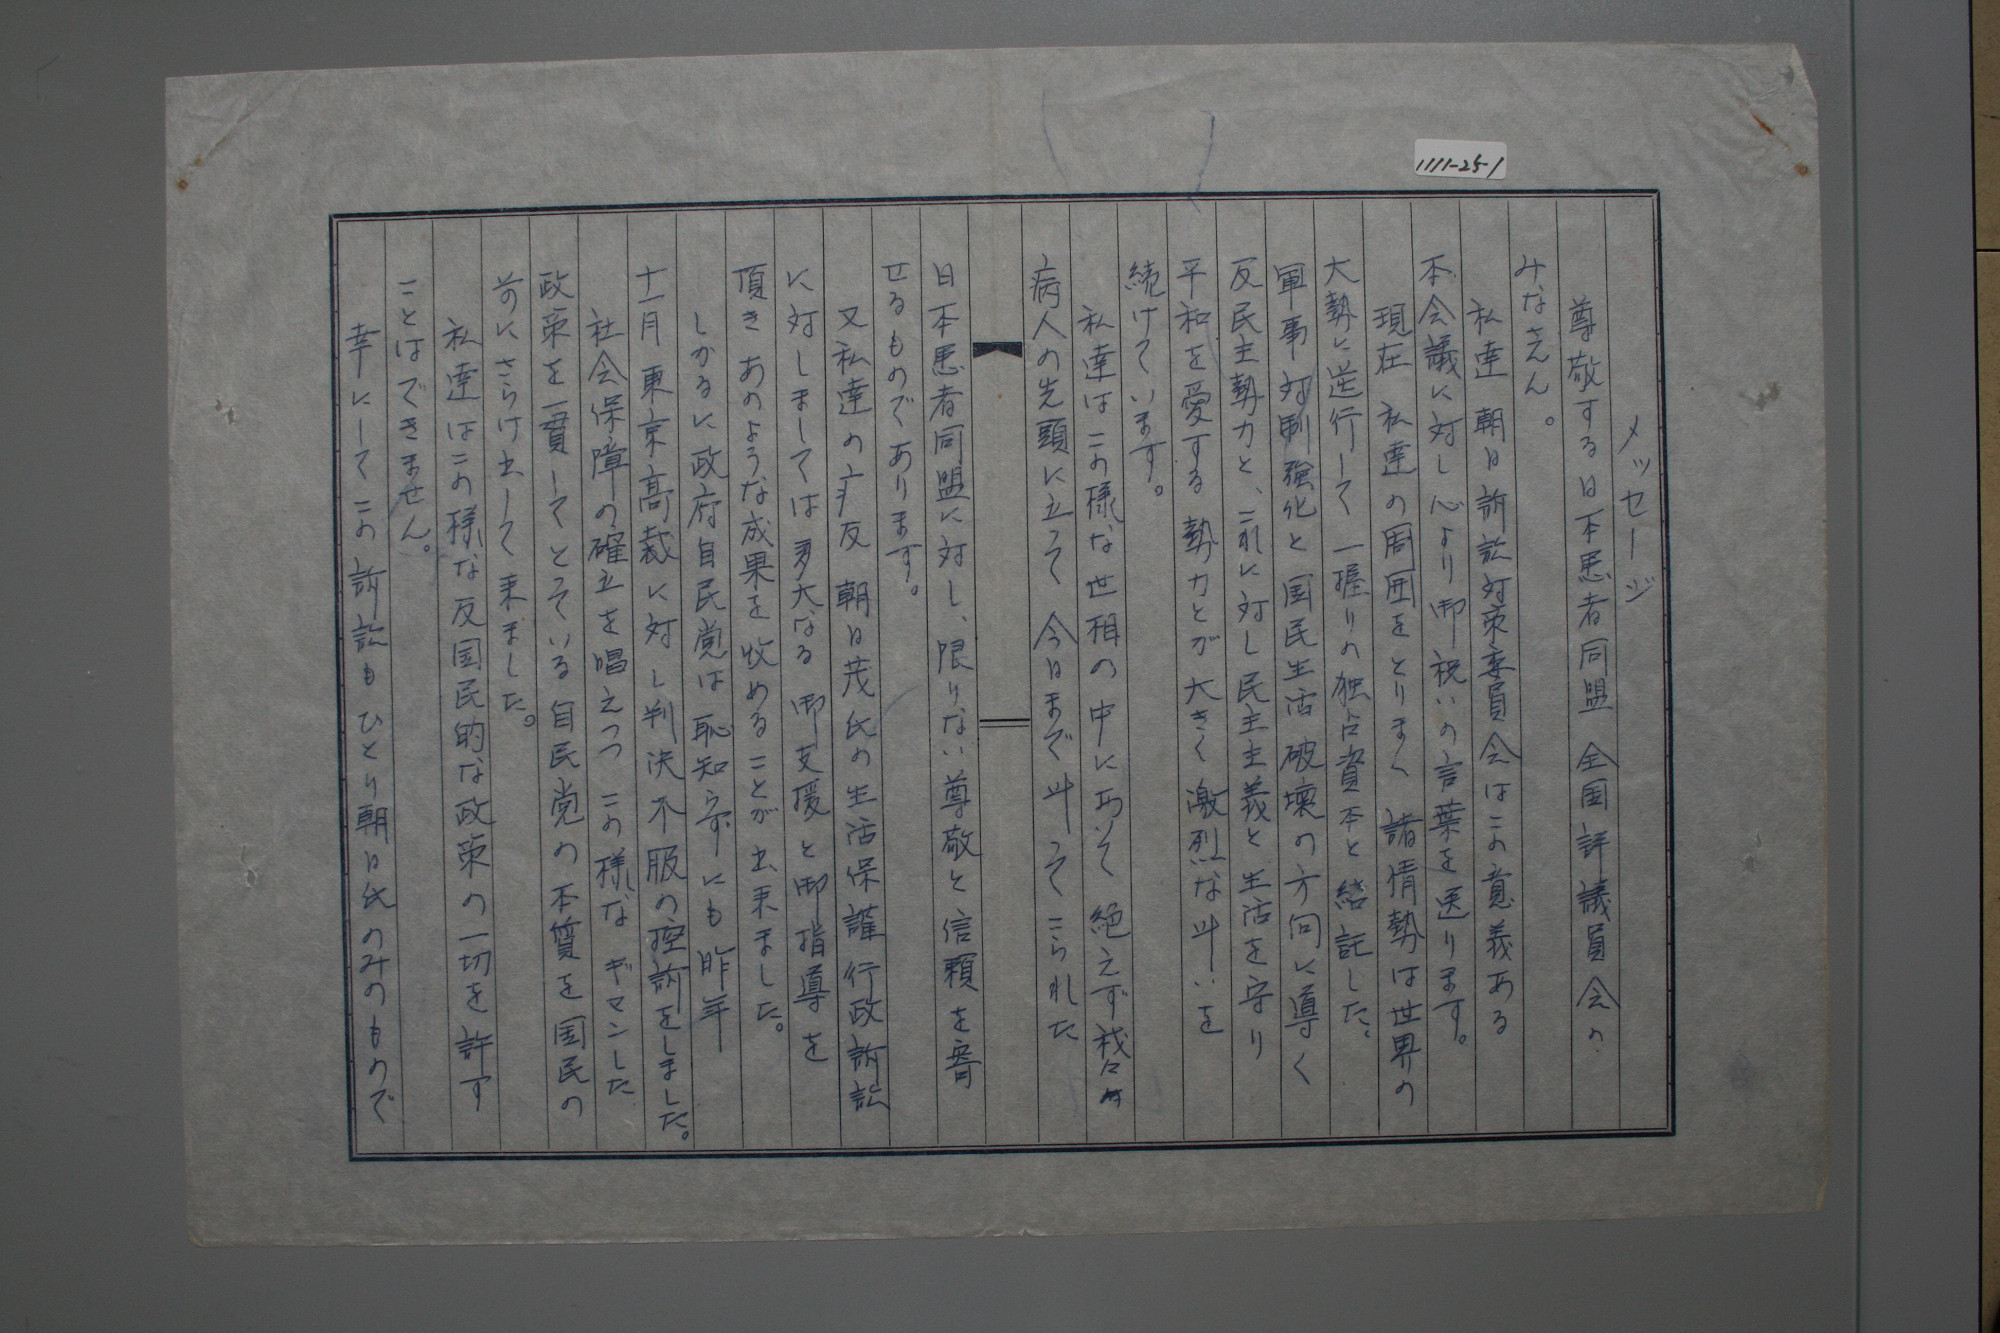 1111-25-1
メッセージ
尊敬する日本患者同盟 全国評議員会の
みなさん。
私達 朝日訴訟対策委員会はこの意義ある
本会議に対し心より御祝いの言葉を送ります。
現在 私達の周囲をとりまく 諸情勢は世界の
大勢に逆行して 一握りの独占資本と結託した、
軍事対制強化と国民生活破壊の方向に導く
反民主勢力と、これに対し民主主義と生活を守り
平和を愛する勢力とが大きく激烈な斗いを
続けています。
私達はこの様な世相の中にあって 絶えず我々
病人の先頭に立って 今日まで斗ってこられた
日本患者同盟に対し、限りない尊敬と信頼を寄
せるものであります。
又私達の疒友 朝日茂氏の生活保護行政訴訟
に対しましては多大なる御支援と御指導を
頂き あのような成果を収めることが出来ました。
しかるに政府自民党は恥知らずにも昨年
十一月東京高裁に対し判決不服の控訴をしました。
社会保障の確立を唱えつつ この様なギマンした
政策を一貫してとっている自民党の本質を国民の
前にさらけ出して来ました。
私達はこの様な反国民的な政策の一切を許す
ことはできません。
幸にしてこの訴訟もひとり朝日氏のみのもので